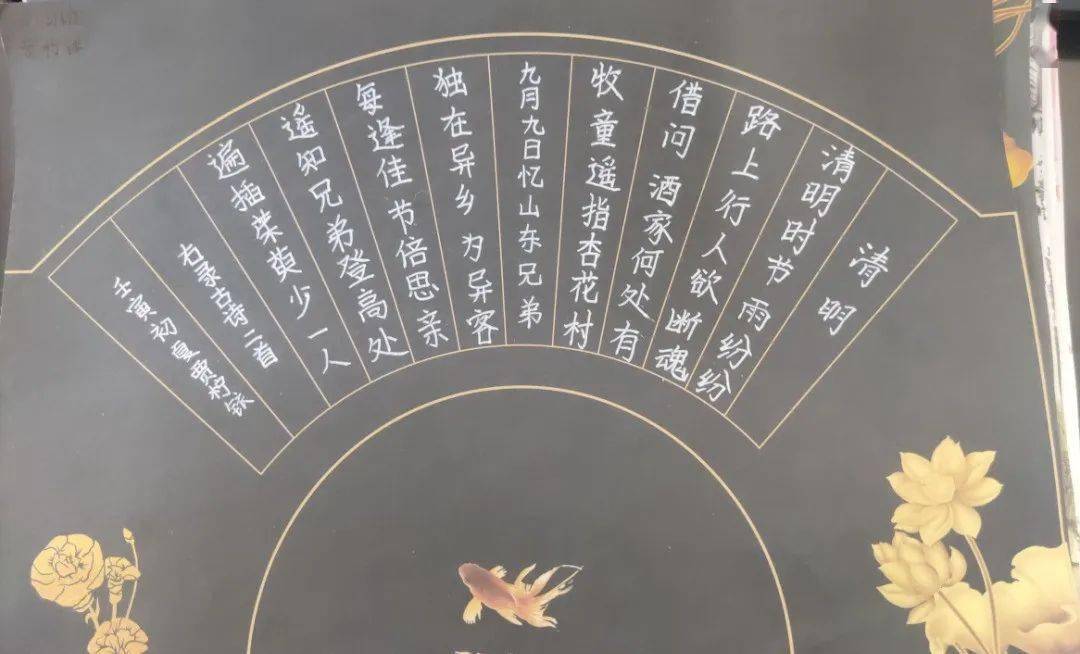 清明
清明时节雨纷纷
路上行人欲断魂
借问酒家何处有
牧童遥指杏花村
九月九日忆山东兄弟
独在异乡为异客
每逢佳节倍思亲
遥知兄弟登高处
遍插茱萸少一人
右录古诗二首
壬寅初夏贾柠铱